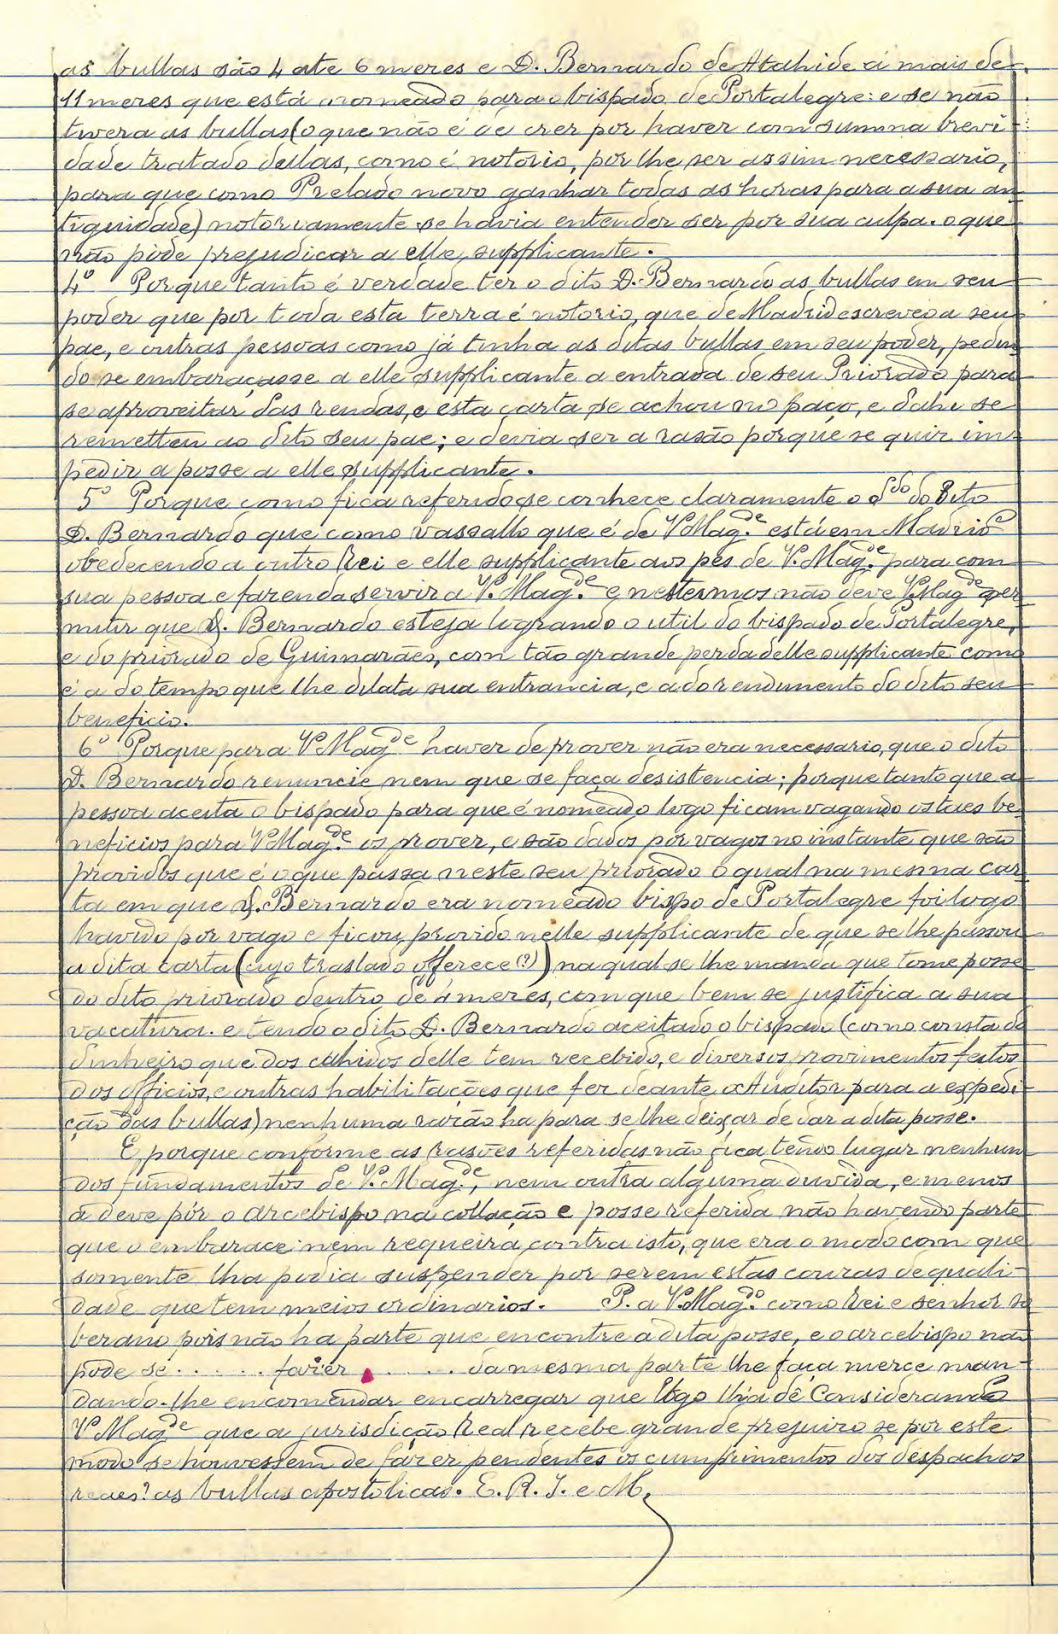 as bullas são 4 ate 6 meres e D. Bernardo de Atahide á mais de
11 meres que está nomeado para o bispado de Portalegre: e se não
tivera as bullas (o que não é de crer por haver com summa brevi-
dade tratado dellas, como é notorio, por lhe ser assim necessario,
para que como Prelado novo ganhar todas as horas para a sua an-
tiguidade) notoriamente se havia entender ser por sua culpa. o que
não pode prejudicar a elle, supplicante.
4º Porque tanto é verdade ter o dito D. Bernardo as bullas em seu
poder que por toda esta terra é notorio, que de Madrid escreveo a seu
pae, e outras pessoas como já tinha as ditas bullas em seu poder, pedin-
do se embaraçasse a elle supplicante a entrada de seu Priorado para
se aproveitar das rendas, e esta carta se achou no paço, e dahi se
remetteu ao dito seu pae; e devia ser a rasão porque se quir im-
pedir a posse a elle supplicante.
5º Porque como fica referido se conhece claramente o do dito
D. Bernardo que como vassallo que é de V. Mag.de está em Madrid
obedecendo a outro Rei e elle supplicante aos pés de V. Mag.de para com
sua pessoa e farenda servir a V. Mag.de e nestermos não deve V. Mag.de per
mittir que D. Bernardo esteja logrando o util do bispado de Portalegre,
e do priorado de Guimarães, com tão grande perda delle supplicante como
é a do tempo que lhe dilata sua entrancia, e a do rendimento do dito seu
beneficio.
6º Porque para V. Mag.de haver de prover não era necessario, que o dito
D. Bernardo renuncie nem que se faça desistencia; porque tanto que a
pessoa aceita o bispado para que é nomeado logo ficam vagando os taes be-
neficios para V. Mag.de os prover, e são dados por vagos no instante que são
providos que é o que passa neste seu priorado o qual na mesma car
ta em que D. Bernardo era nomeado bispo de Portalegre foi logo
havido por vago e ficou provido nelle supplicante de que se lhe passou
a dita carta (cujo traslado offerece (?)) na qual se lhe manda que tome posse
do dito priorado dentro de 4 meres, com que bem se justifica a sua
vacatura. e tendo o dito D. Bernardo aceitado o bispado (como consta do
dinheiro que dos cahidos delle tem recebido, e diversos provimentos feitos
dos officios, e outras habilitações que fer deante o Auditor para a expedi-
ção das bullas) nenhuma rasão ha para se lhe deixar de dar a dita posse.
E porque conforme as rasões referidas não fica tendo lugar nenhum
dos fundamentos de V. Mag.de, nem outra alguma duvida, e menos
a deve pôr o arcebispo na collação e posse referida não havendo parte
que o embarace nem requeira contra isto, que era o modo com que
somente lha podia suspender por serem estas couras de quali-
dade que tem meios ordinarios. P. a V. Mag.de como Rei e senhor so
berano pois não ha parte que encontre a dita posse, e o arcebispo não
pode se . . . . . . farer . . . . . da mesma parte lhe faça merce man-
dando-lhe encomendar encarregar que logo lhja dê Considerando
V. Mag.de que a jurisdicção Real recebe grande prejuiro se por este
modo se houvessem de farer pendentes os cumprimentos dos despachos
reaes? as bullas apostolicas. E. R. J. e M.